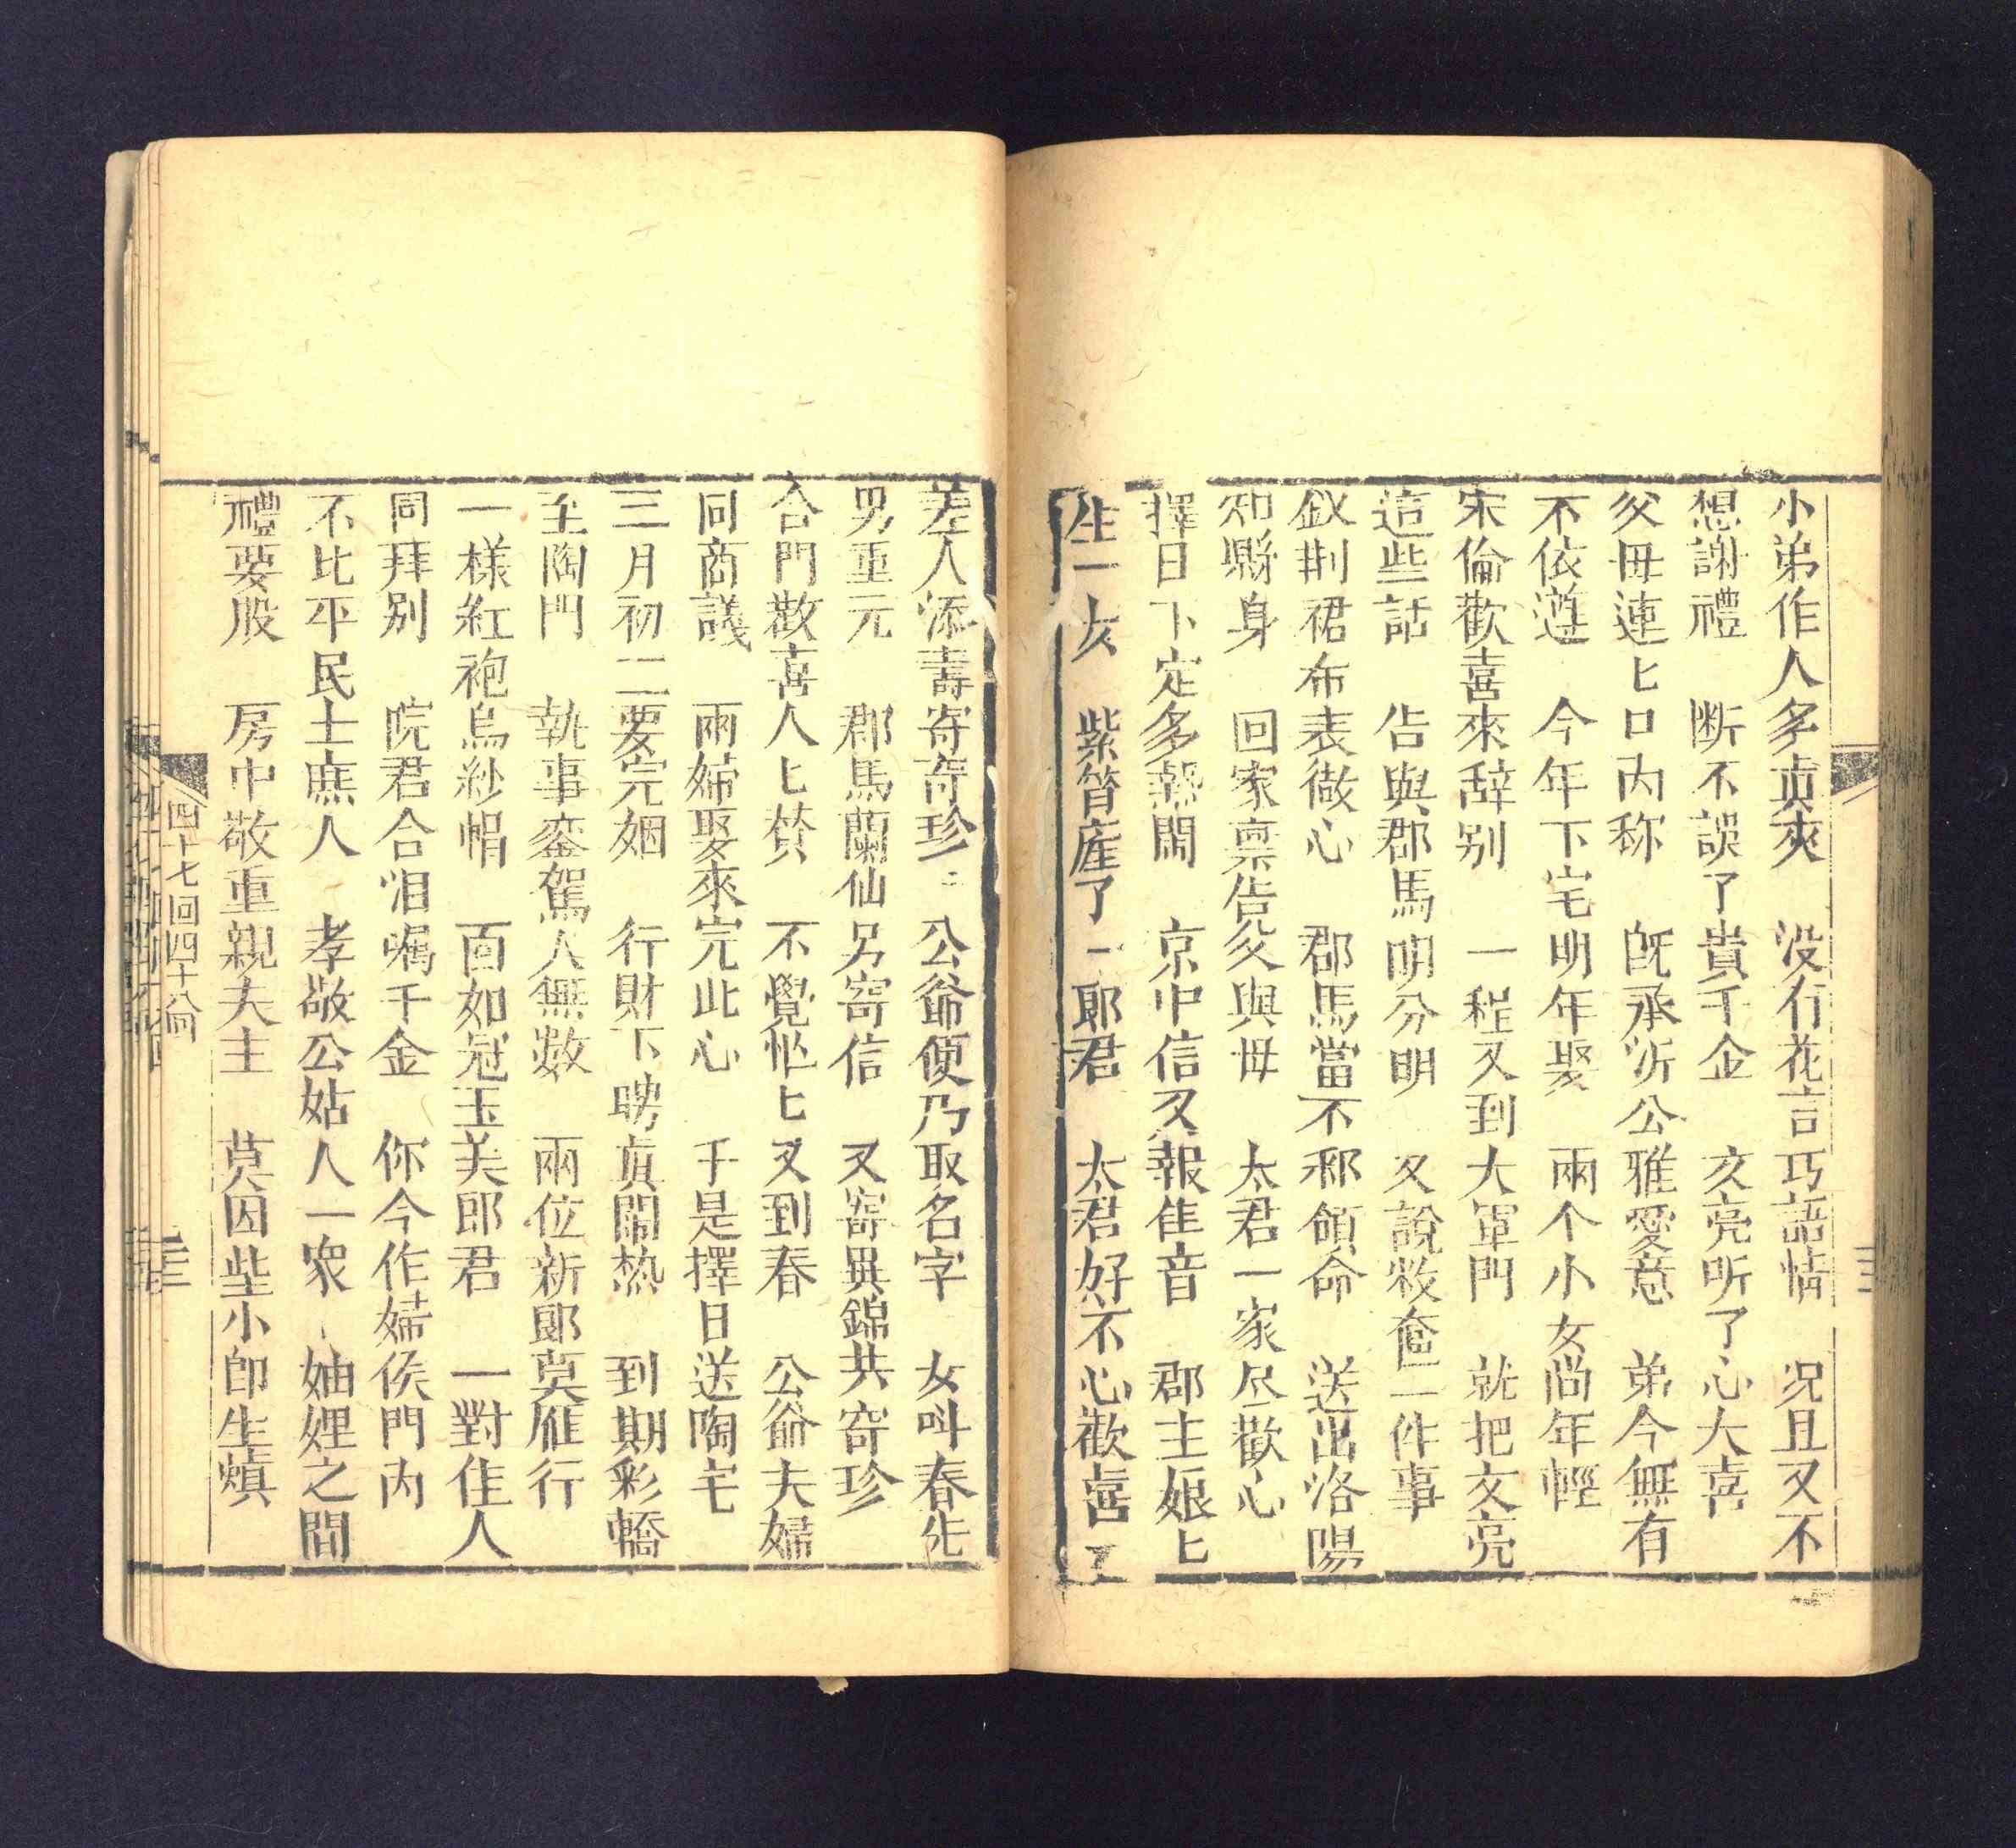 小弟作人多貞爽　没有花言巧語情　况且又不
想謝禮　断不誤了貴千金　文亮听了心大喜
父母連匕口内称　既承沂公雅愛意　弟今無有
不依遵　今年下宅明年娶　兩个小女尚年輕
宋倫歡喜來辞别　一程又到大軍門　就把文亮
這些話　告與郡馬明分明　又說救奩一件事
釵荆裙布表做心　郡馬當不郡領命　送出洛陽
知縣身　回家禀告父與母　太君一家尽歡心
擇日下定多熱鬧　京中信又報隹音　郡主娘匕
生一女　紫筲産了一郎君　太君好不心歡喜　又
差人添壽寄竒珍　公爺便乃取名字　女呌春先
男重元　郡馬蘭仙另寄信　又寄異錦共竒珍
合門歡喜人匕賛　不覺忙匕又到春　公爺夫婦
同商議　兩婦娶來完此心　于是擇日送陶宅
三月初二要完姻　行財下聘真閙熱　到期彩轎
至陶門　執事鑾駕人無数　兩位新郎莫雁行
一様紅袍烏紗帽　面如冠玉美郎君　一對佳人
同拜别　院君合泪嘱千金　你今作婦侯門内
不比平民士庶人　孝敬公姑人一衆　妯娌之間
禮要殷　房中敬重親夫主　莫因些小卽生嗔
四十七回四十八回